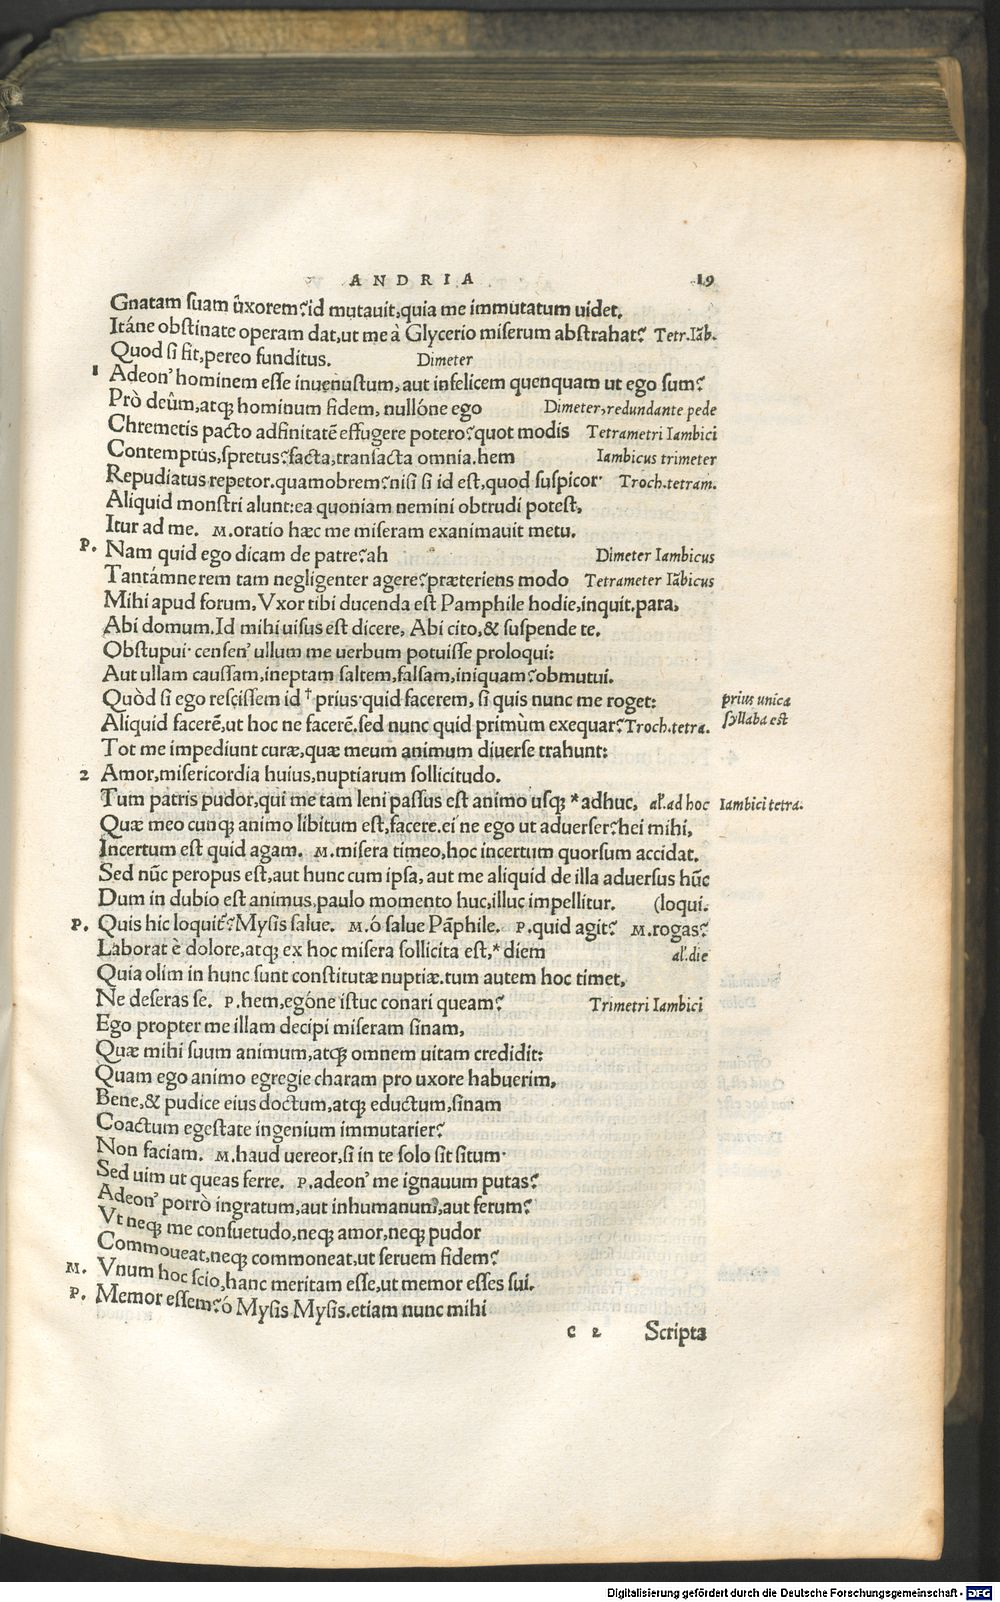 ANDRIA 19
Gnatam suam ûxorem? id mutauit, quia me immutatum uidet.
Itáne obstinate operam dat, ut me à Glycerio miserum abstrahat? Tetr. Iāb.
Quod si fit, pereo funditus. Dimeter
1 Adeon' hominem esse inuenustum, aut infelicem quenquam ut ego sum?
Prò deûm, atqȝ hominum fidem, nullóne ego Dimeter, redundante pede
Chremetis pacto adfinitatē effugere potero? quot modis Tetrametri Iambici
Contemptus, spretus? facta, transacta omnia. hem Iambicus trimeter
Repudiatus repetor. quamobrem? nisi si id est, quod suspicor· Troch. tetram.
Aliquid monstri alunt: ea quoniam nemini obtrudi potest,
Itur ad me. M. oratio hæc me miseram exanimauit metu.
P. Nam quid ego dicam de patre? ah Dimeter Iambicus
Tantámne rem tam negligenter agere? præteriens modo Tetrameter Iābicus
Mihi apud forum, Vxor tibi ducenda est Pamphile hodie, inquit. para,
Abi domum. Id mihi uisus est dicere, Abi cito, & suspende te.
Obstupui· censen' ullum me uerbum potuisse proloqui:
Aut ullam caussam, ineptam saltem, falsam, iniquam? obmutui.
Quòd si ego rescissem id † prius· quid facerem, si quis nunc me roget: prius unica
Aliquid facerē, ut hoc ne facerē. sed nunc quid primùm exequar? Troch. tetra. syllaba est
Tot me impediunt curæ, quæ meum animum diuerse trahunt:
2 Amor, misericordia huius, nuptiarum sollicitudo.
Tum patris pudor, qui me tam leni passus est animo usqȝ * adhuc, al'. ad hoc Iambici tetra.
Quæ meo cunqȝ animo libitum est, facere. ei ne ego ut aduerser? hei mihi,
Incertum est quid agam. M. misera timeo, hoc incertum quorsum accidat.
Sed nūc peropus est, aut hunc cum ipsa, aut me aliquid de illa aduersus hūc
Dum in dubio est animus, paulo momento huc, illuc impellitur. (loqui.
P. Quis hic loquit̄? Mysis salue. M. ó salue Pāphile. P. quid agit? M. rogas?
Laborat è dolore, atqȝ ex hoc misera sollicita est, * diem al'. die
Quia olim in hunc sunt constitutæ nuptiæ. tum autem hoc timet,
Ne deseras se. P. hem, egóne istuc conari queam? Trimetri Iambici
Ego propter me illam decipi miseram sinam,
Quæ mihi suum animum, atqȝ omnem uitam credidit:
Quam ego animo egregie charam pro uxore habuerim,
Bene, & pudice eius doctum, atqȝ eductum, sinam
Coactum egestate ingenium immutarier?
Non faciam. M. haud uereor, si in te solo sit situm·
Sed uim ut queas ferre. P. adeon' me ignauum putas?
Adeon' porrò ingratum, aut inhumanum, aut ferum?
Vt neqȝ me consuetudo, neqȝ amor, neqȝ pudor
Commoueat, neqȝ commoneat, ut seruem fidem?
M. Vnum hoc scio, hanc meritam esse, ut memor esses sui.
P. Memor essem? ó Mysis Mysis. etiam nunc mihi
C 2 Scripta
Digitalisierung gefördert durch die Deutsche Forschungsgemeinschaft - DFG